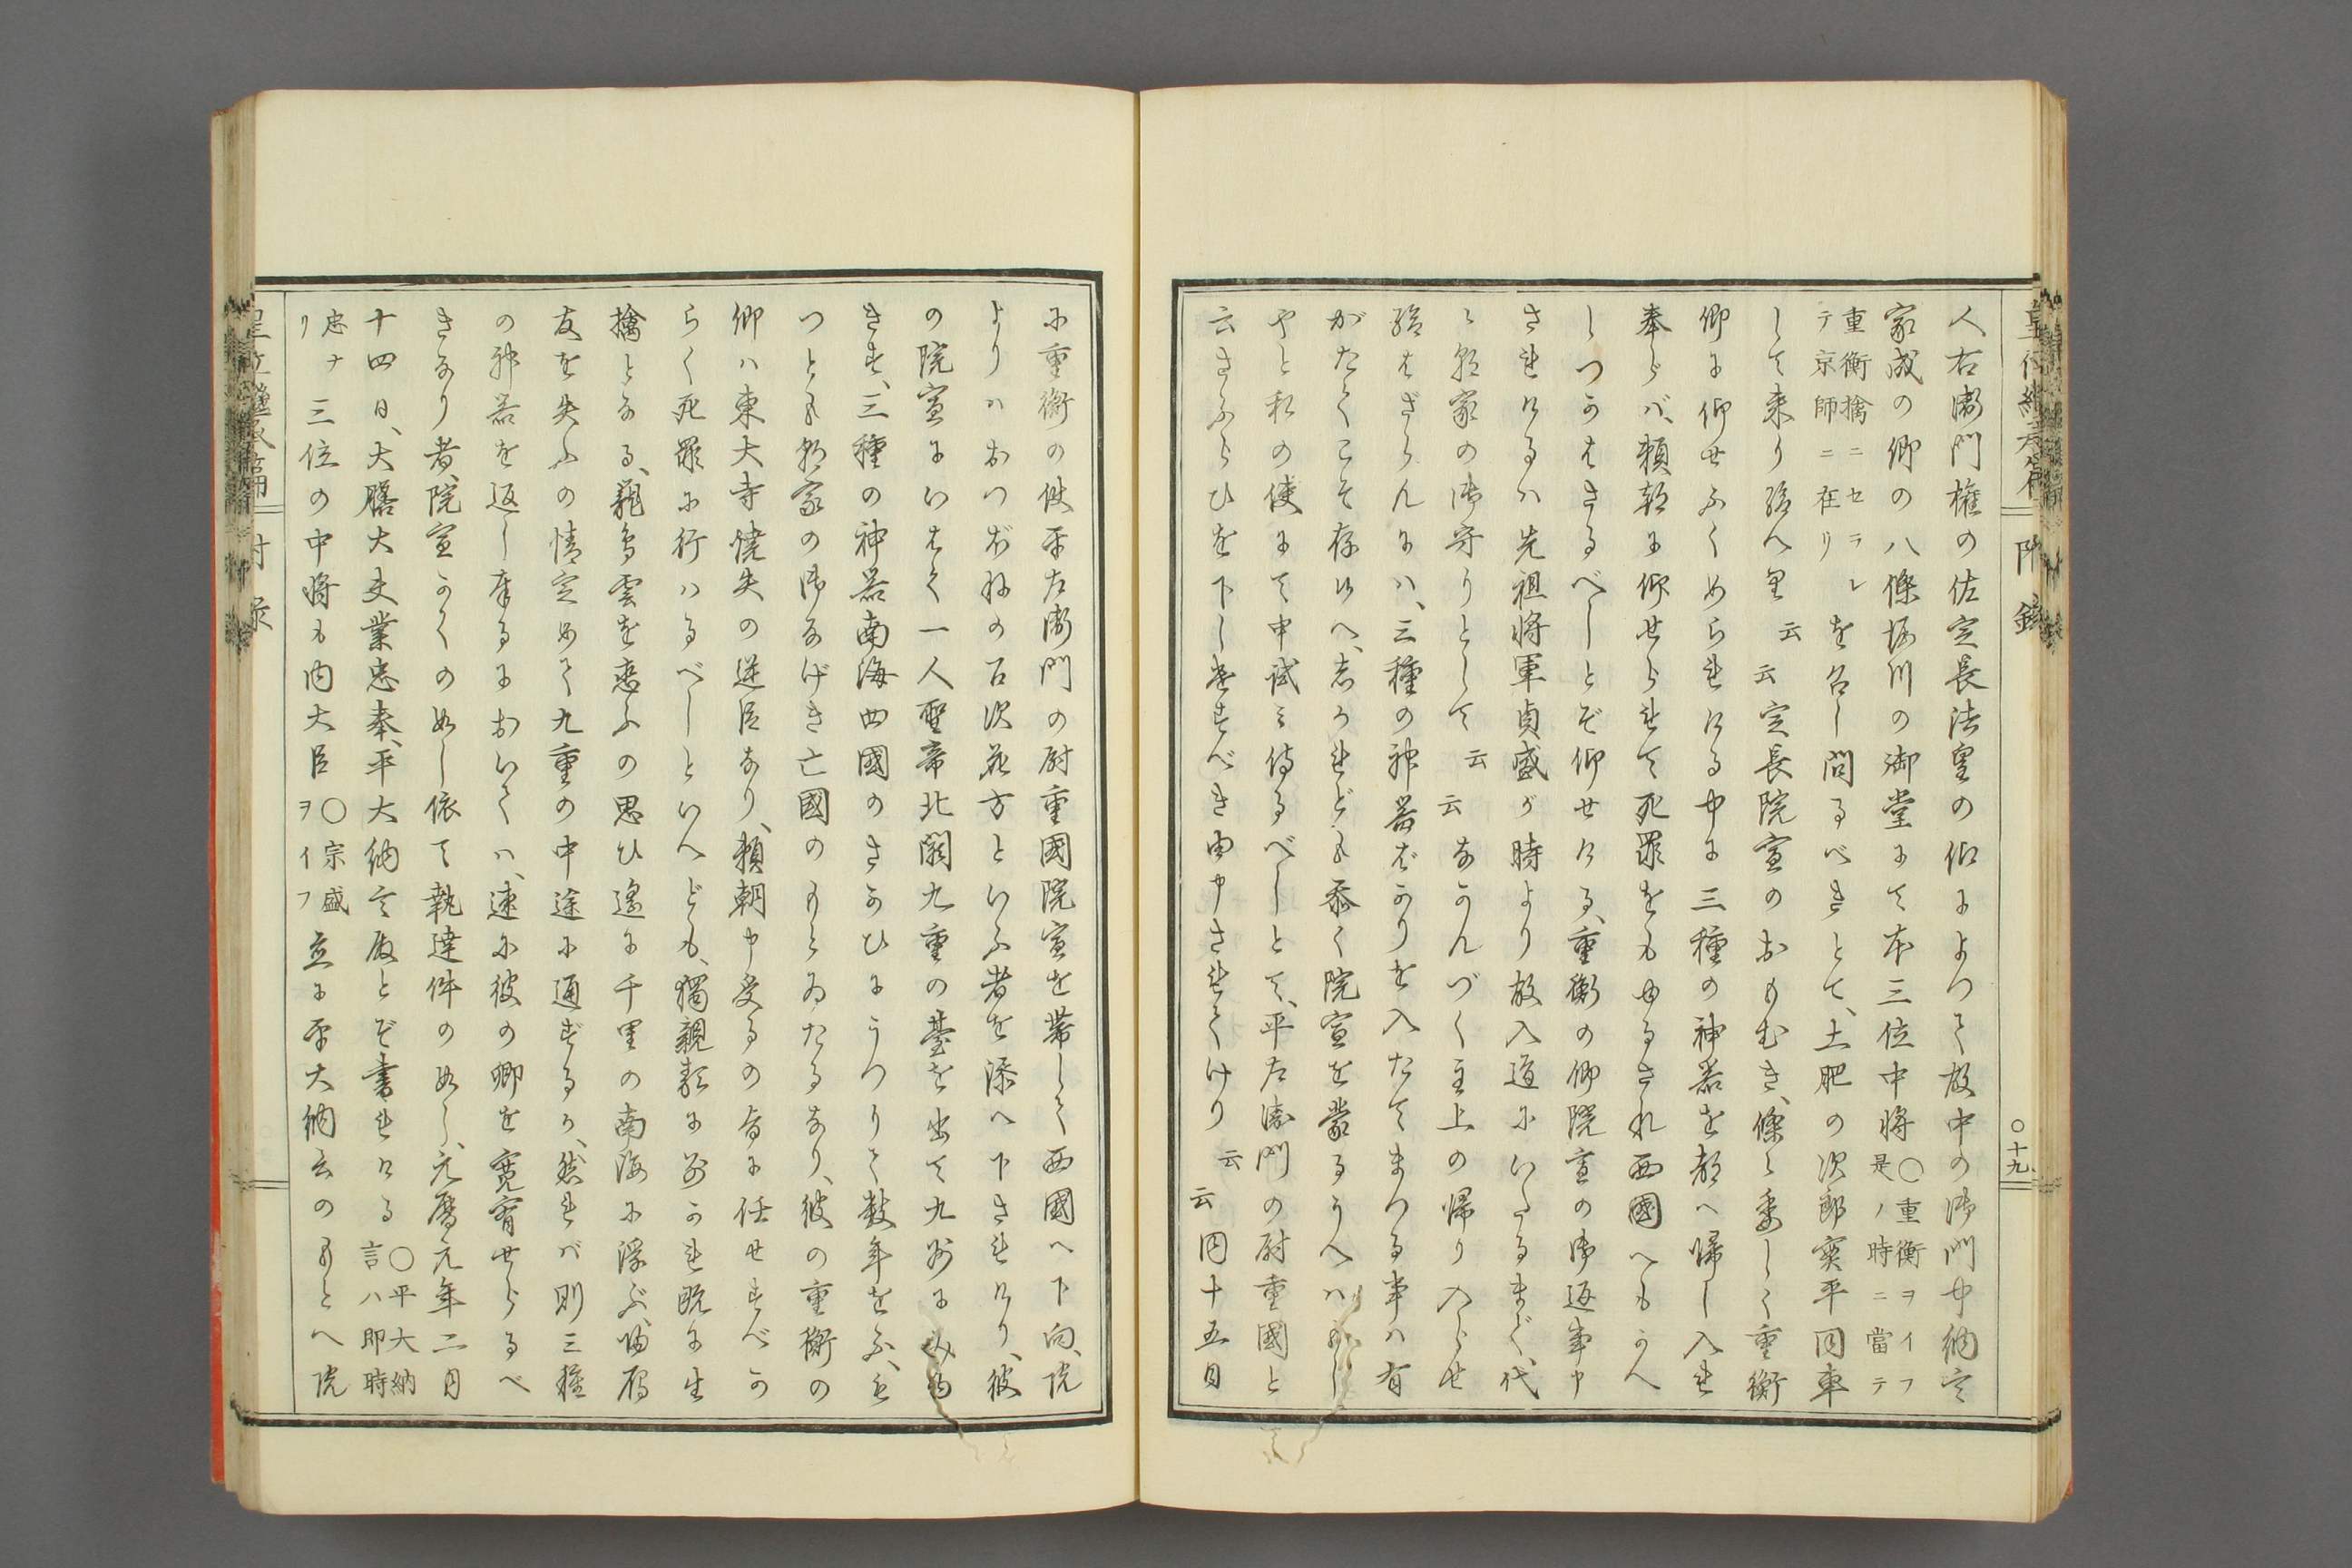 人右衛門権の佐定長法皇の仰によつて故中の御門中納言
家成の卿の八條堀川の御堂にて本三位中将 ○重衡ヲイフ是ノ時ニ當テ
重衡擒ニセラレテ京師ニ在リ を召し問るべきとて、土肥の次郎実平同車
して来り給へ里 云云 定長院宣のおもむき、條々委しく重衡
卿に仰せふくめられける中に三種の神器を都へ帰し入れ
奉らバ、頼朝に仰せられて死罪をもゆるされ西國へもかへ
しつかはさるべしとぞ仰せける、重衡の卿院宣の御返事申
されけるハ先祖将軍貞盛が時より故入道にいたるまで、代
々朝家の御守りとして 云云 なかんづく主上の帰り入らせ
給はざらんにハ、三種の神器ばかりを入たてまつる事ハ有
がたくこそ存候へ、志かれども忝く院宣を蒙るうへハもし
やと私の使にて申試み侍るべしとて、平左衛門の尉重國と
云さふらひを下し遣すべき由申されけり 云云 同十五日
皇位継承篇 附録 ○十九
に重衡の使平左衛門の尉重國院宣を帯して西國へ下向、院
よりハおつぼねの召次花方といふ者を添へ下されけり、彼
の院宣にいはく一人聖帝北闕九重の臺を出て九州に
き、三種の神器南海四國のさかひにうつりて数年をふ、も
つとも朝家の御なげき亡國のもとゐたるなり、彼の重衡の
卿ハ東大寺焼失の逆臣なり、頼朝申受るの旨に任せすべか
らく死罪に行ハるべしといへども、獨親類に別かれ既に生
擒となる、籠鳥雲を恋ふの思ひ遙に千里の南海に浮ぶ、帰雁
友を失ふの情定めて九重の中途に通ずるか、然れバ則三種
の神器を返し奉るにおいてハ、速に彼の卿を寛宥せらるべ
きなり者、院宣かくのめし依て執達件のめし、元暦元年二月
十四日、大膳大夫業忠奉、平大納言殿とぞ書れける ○平大納言ハ即時
忠ナリ 三位の中将も内大臣 ○宗盛ヲイフ 並に平大納言のもとへ院
皇位継承篇 附録